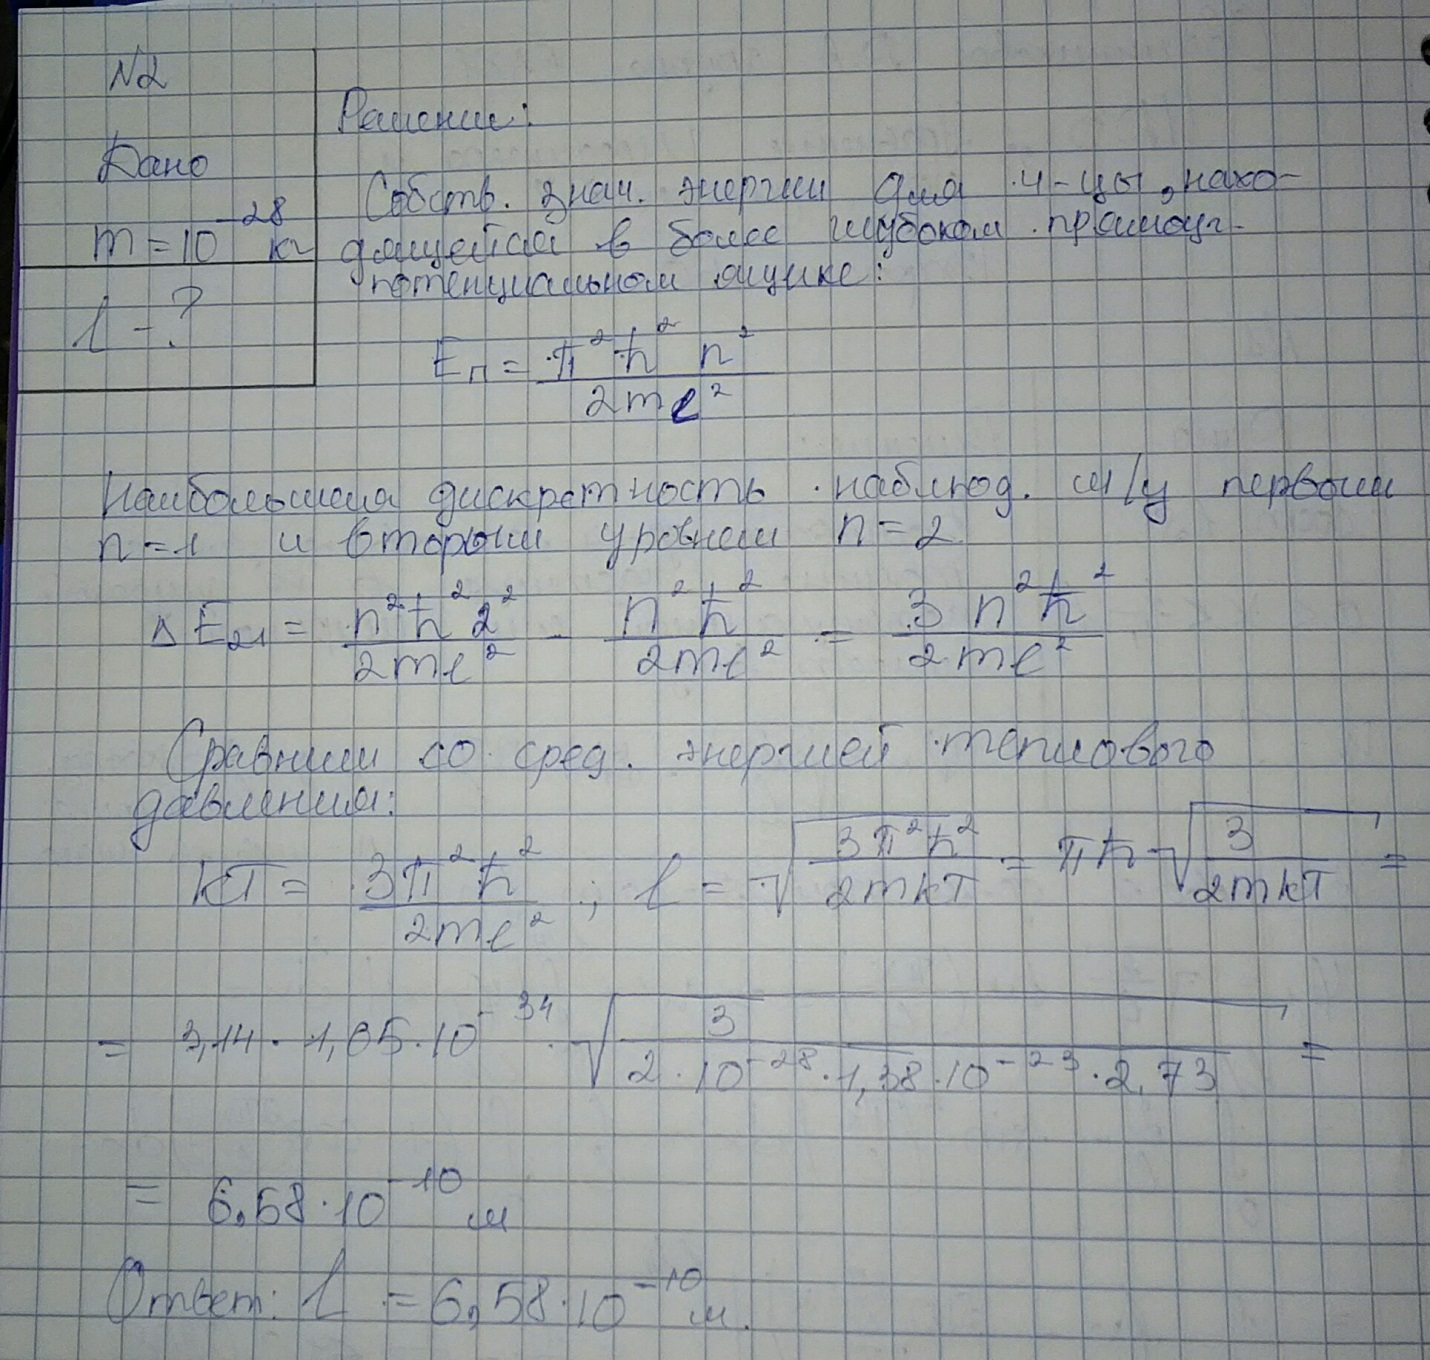 N2
Дано
m = 10^-28 кг
l - ?
Решение:
Собств. знач. энергии для ч-цы, нахо-
дящейся в более глубоком прямоуг.
потенциальном ящике:
Eₙ = π²ħ²n² / 2mℓ²
Наибольшая дискретность наблюд. м/у первым
n=1 и вторым уровнем n=2
ΔE₂₁ = n²ħ²2² / 2mℓ² - n²ħ² / 2mℓ² = 3n²ħ² / 2mℓ²
Сравним со сред. энергией теплового
давления:
kT = 3π²ħ² / 2mℓ² ; l = √(3π²ħ² / 2mkT) = πħ √(3 / 2mkT) =
= 3,14 · 1,05 · 10^-34 · √(3 / 2 · 10^-28 · 1,38 · 10^-23 · 2,73) =
= 6,58 · 10^-10 м
Ответ: l = 6,58 · 10^-10 м.